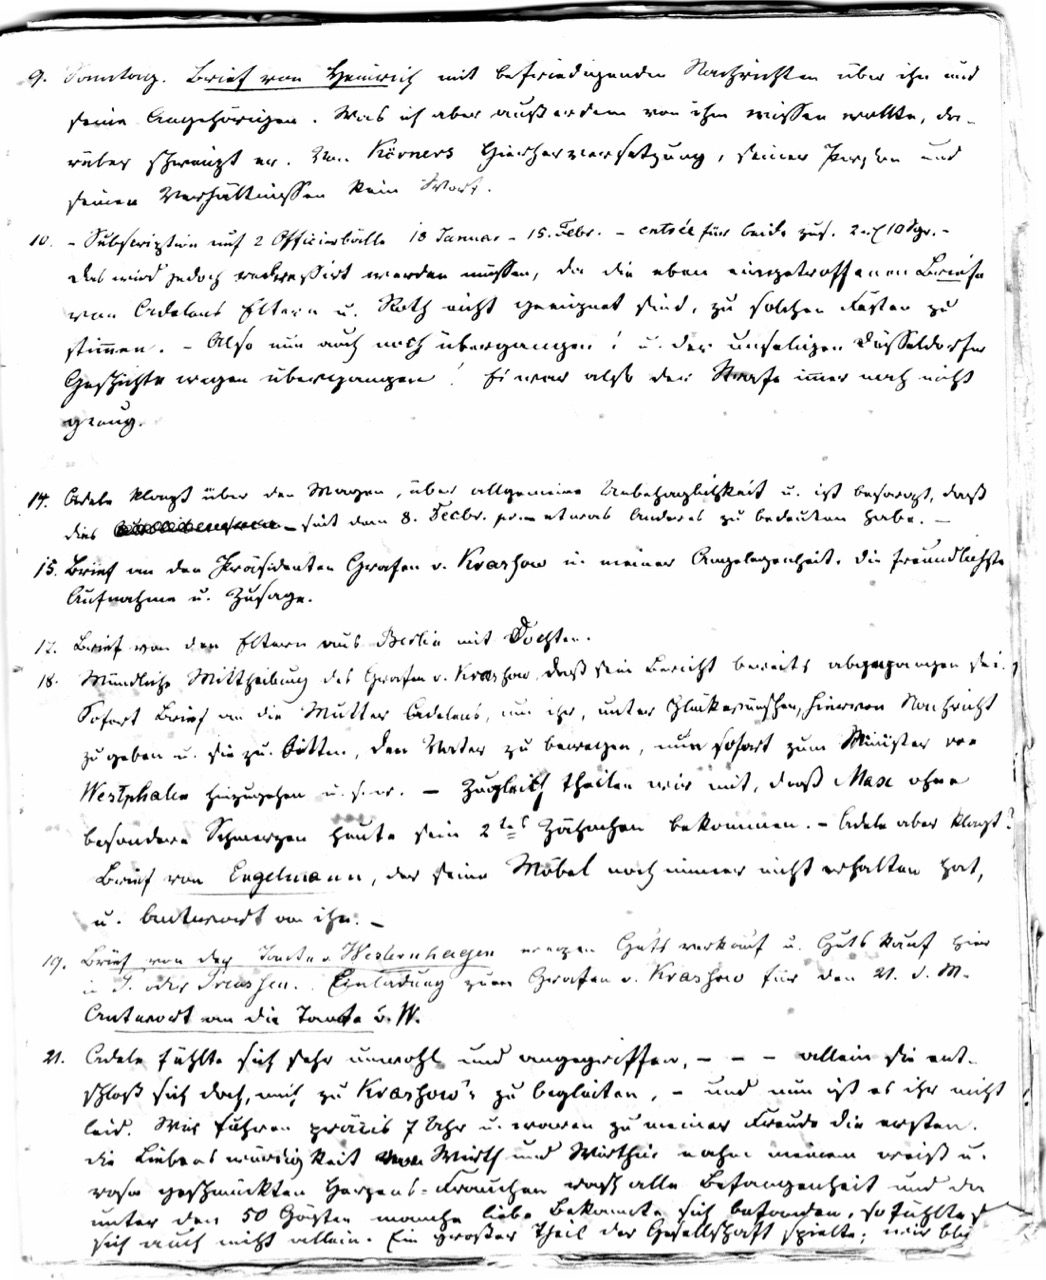 9. Sonntag. Brief von Heinrich mit befriedigenden Nachrichten über ihn und
seine Angehörigen. Was ich aber außerdem von ihm wissen wollte, da-
rüber schweigt er. Von Körners Hierherversetzung, seiner Person und
seinen Verhältnissen kein Wort.
10. - Subscription auf 2 Officierbälle 18 Januar - 15. Febr. - entrée für beide zus. 2 10 Sgr. -
das wird jedoch redressirt werden müssen, da die eben eingetroffenen Briefe
von Adelens Eltern u. Roth nicht geeignet sind, zu solchen Festen zu
stimmen. - Also nun auch noch übergangen! u. der unseligen Düsseldorfer
Geschichte wegen übergangen! Es war also der Strafe immer noch nicht
genug.
14. Adele klagt über den Magen, über allgemeine Unbehaglichkeit u. ist besorgt, daß
dies seit dem 8. Decbr. pr. etwas Anderes zu bedeuten habe. -
15. Brief an den Präsidenten Grafen v. Krassow in meiner Angelegenheit. die freundlichste
Aufnahme u. Zusage.
17. Brief von den Eltern aus Berlin mit
18. Mündliche Mittheilung des Grafen v. Krassow, daß sein Bericht bereits abgegangen sei.
Sofort Brief an die Mutter Adelens, um ihr, unter Glückwünschen, hiervon Nachricht
zu geben u. sie zu bitten, den Vater zu bewegen, nun sofort zum Minister von
Westphalen hinzugehen u.s.w. - Zugleich theilen wir mit, daß Max ohne
besondere Schmerzen heute sein 2tes Zähnchen bekommen. - Adele aber klagt!
Brief von Engelmann, der seine Möbel noch immer nicht erhalten hat,
u. Antwort an ihn. -
19. Brief von der Tante v. Westernhagen wegen Guts verkauf u. Guts kauf hier
in P. oder Preussen. Einladung zum Grafen v. Krassow für den 21. d. M.
Antwort an die Tante v. W.
21. Adele fühlte sich sehr unwohl und angegriffen, - - - allein sie ent-
schloß sich doch, mich zu Krassow's zu begleiten, - und nun ist es ihr nicht
leid. Wir fuhren präcis 7 Uhr u. waren zu meiner Freude die ersten.
die Liebenswürdigkeit von Wirth und Wirthin nahm meinem weiß u.
rosa geschmückten Herzens-Frauchen rasch alle Befangenheit und da
unter den 50 Gästen manche liebe Bekannte sich befanden, so fühlte sie
sich auch nicht allein. Ein großer Theil der Gesellschaft spielte; wir